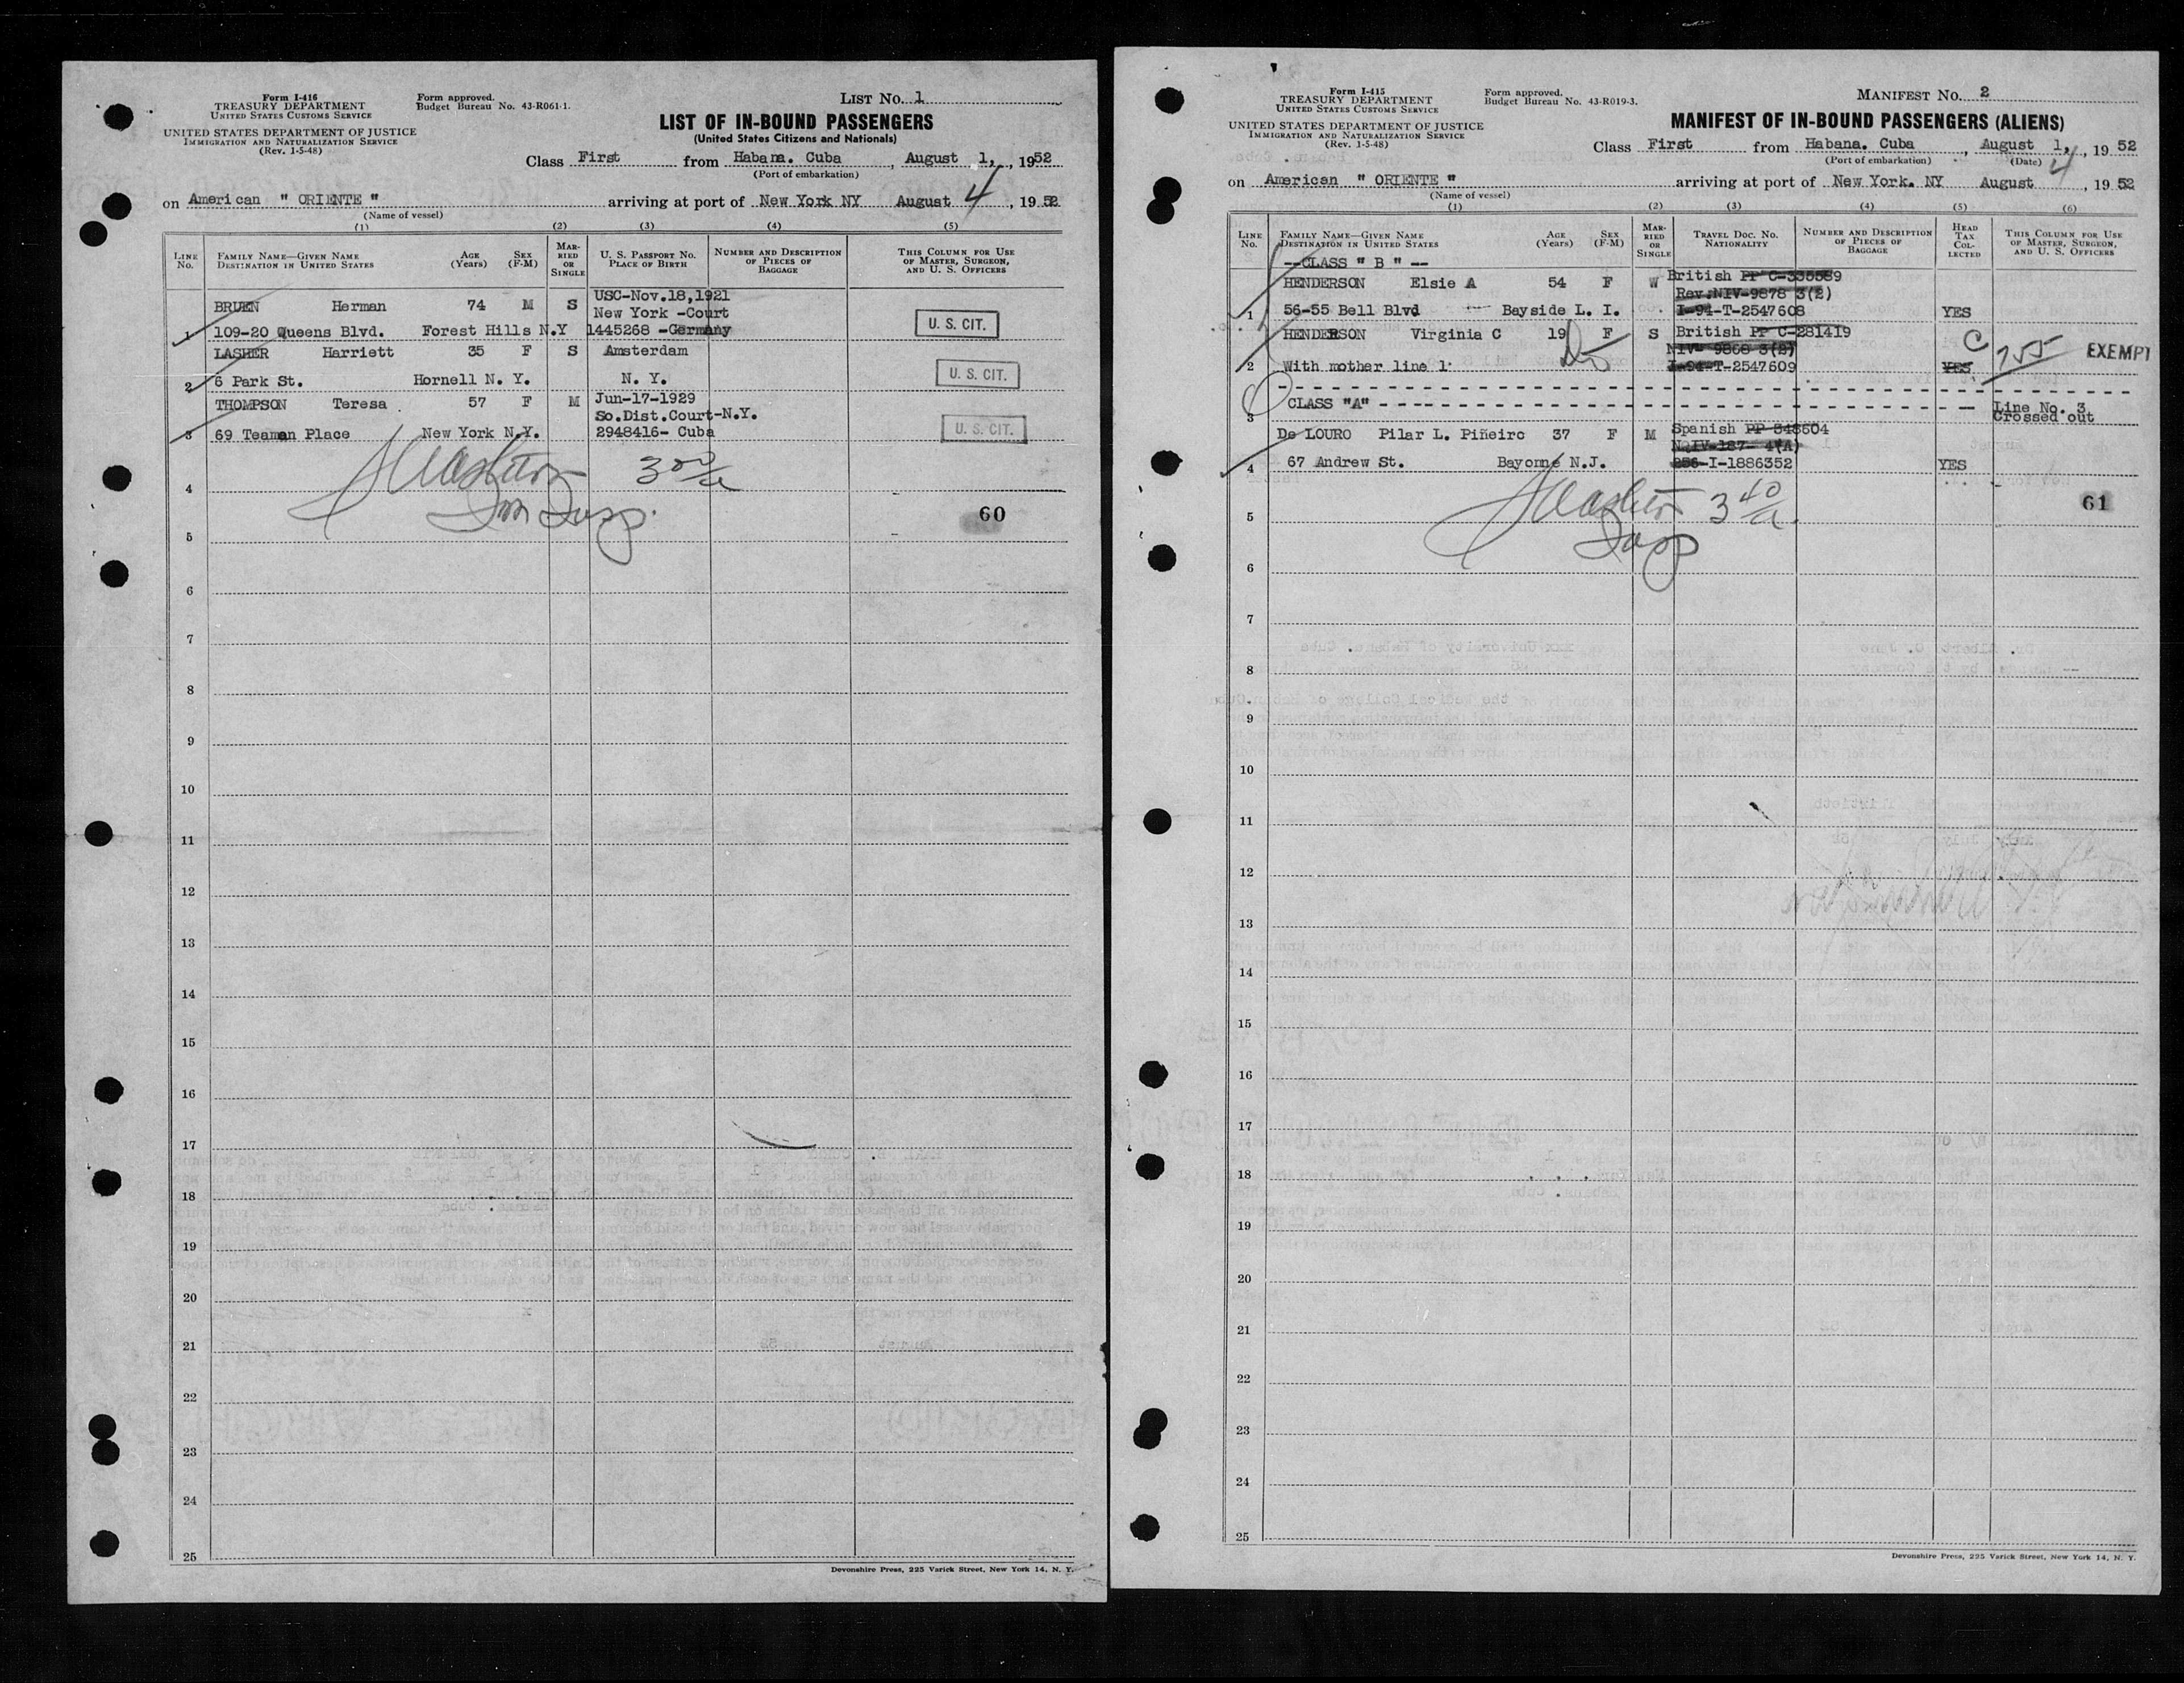 Form I-416
TREASURY DEPARTMENT
UNITED STATES CUSTOMS SERVICE
UNITED STATES DEPARTMENT OF JUSTICE
IMMIGRATION AND NATURALIZATION SERVICE
(Rev. 1-5-48)
Form approved.
Budget Bureau No. 43-R061-1.
LIST NO. 1
LIST OF IN-BOUND PASSENGERS
(United States Citizens and Nationals)
Class First from Habana. Cuba, August 1, 1952
(Port of embarkation)
on American " ORIENTE " arriving at port of New York NY August 4, 1952
(Name of vessel)
(1) (2) (3) (4) (5)
LINE No. FAMILY NAME—GIVEN NAME DESTINATION IN UNITED STATES AGE (Years) SEX (F-M) MARRIED OR SINGLE U. S. PASSPORT NO. PLACE OF BIRTH NUMBER AND DESCRIPTION OF PIECES OF BAGGAGE THIS COLUMN FOR USE OF MASTER, SURGEON, AND U. S. OFFICERS
BRUEN Herman 74 M S USC-Nov.18,1921
New York -Court
1 109-20 Queens Blvd. Forest Hills N.Y 1445268 -Germany U. S. CIT.
LASHER Harriett 35 F S Amsterdam
2 6 Park St. Hornell N. Y. N. Y. U. S. CIT.
THOMPSON Teresa 57 F M Jun-17-1929
So.Dist.Court-N.Y.
3 69 Teaman Place New York N.Y. 2948416- Cuba U. S. CIT.
4
60
5
6
7
8
9
10
11
12
13
14
15
16
17
18
19
20
21
22
23
24
25
Devonshire Press, 225 Varick Street, New York 14, N. Y.
Form I-415
TREASURY DEPARTMENT
UNITED STATES CUSTOMS SERVICE
UNITED STATES DEPARTMENT OF JUSTICE
IMMIGRATION AND NATURALIZATION SERVICE
(Rev. 1-5-48)
Form approved.
Budget Bureau No. 43-R019-3.
MANIFEST NO. 2
MANIFEST OF IN-BOUND PASSENGERS (ALIENS)
Class First from Habana. Cuba, August 1, 1952
(Port of embarkation) (Date)
on American " ORIENTE " arriving at port of New York. NY August 4, 1952
(Name of vessel)
(1) (2) (3) (4) (5) (6)
LINE No. FAMILY NAME—GIVEN NAME DESTINATION IN UNITED STATES AGE (Years) SEX (F-M) MARRIED OR SINGLE TRAVEL DOC. NO. NATIONALITY NUMBER AND DESCRIPTION OF PIECES OF BAGGAGE HEAD TAX COLLECTED THIS COLUMN FOR USE OF MASTER, SURGEON, AND U. S. OFFICERS
--CLASS " B " --
HENDERSON Elsie A 54 F W British PP C-335589
Rev.NIV-9878 3(2)
1 56-55 Bell Blvd Bayside L. I. I-94-T-2547608 YES
HENDERSON Virginia C 19 F S British PP C-281419
NIV- 9868 3(2) C EXEMPT
2 With mother line 1 I-94-T-2547609 YES
CLASS "A"
3 Line No. 3 Crossed out
De LOURO Pilar L. Piñeiro 37 F M Spanish PP 848604
4 67 Andrew St. Bayonne N.J. 256-I-1886352 YES
61
5
6
7
8
9
10
11
12
13
14
15
16
17
18
19
20
21
22
23
24
25
Devonshire Press, 225 Varick Street, New York 14, N. Y.